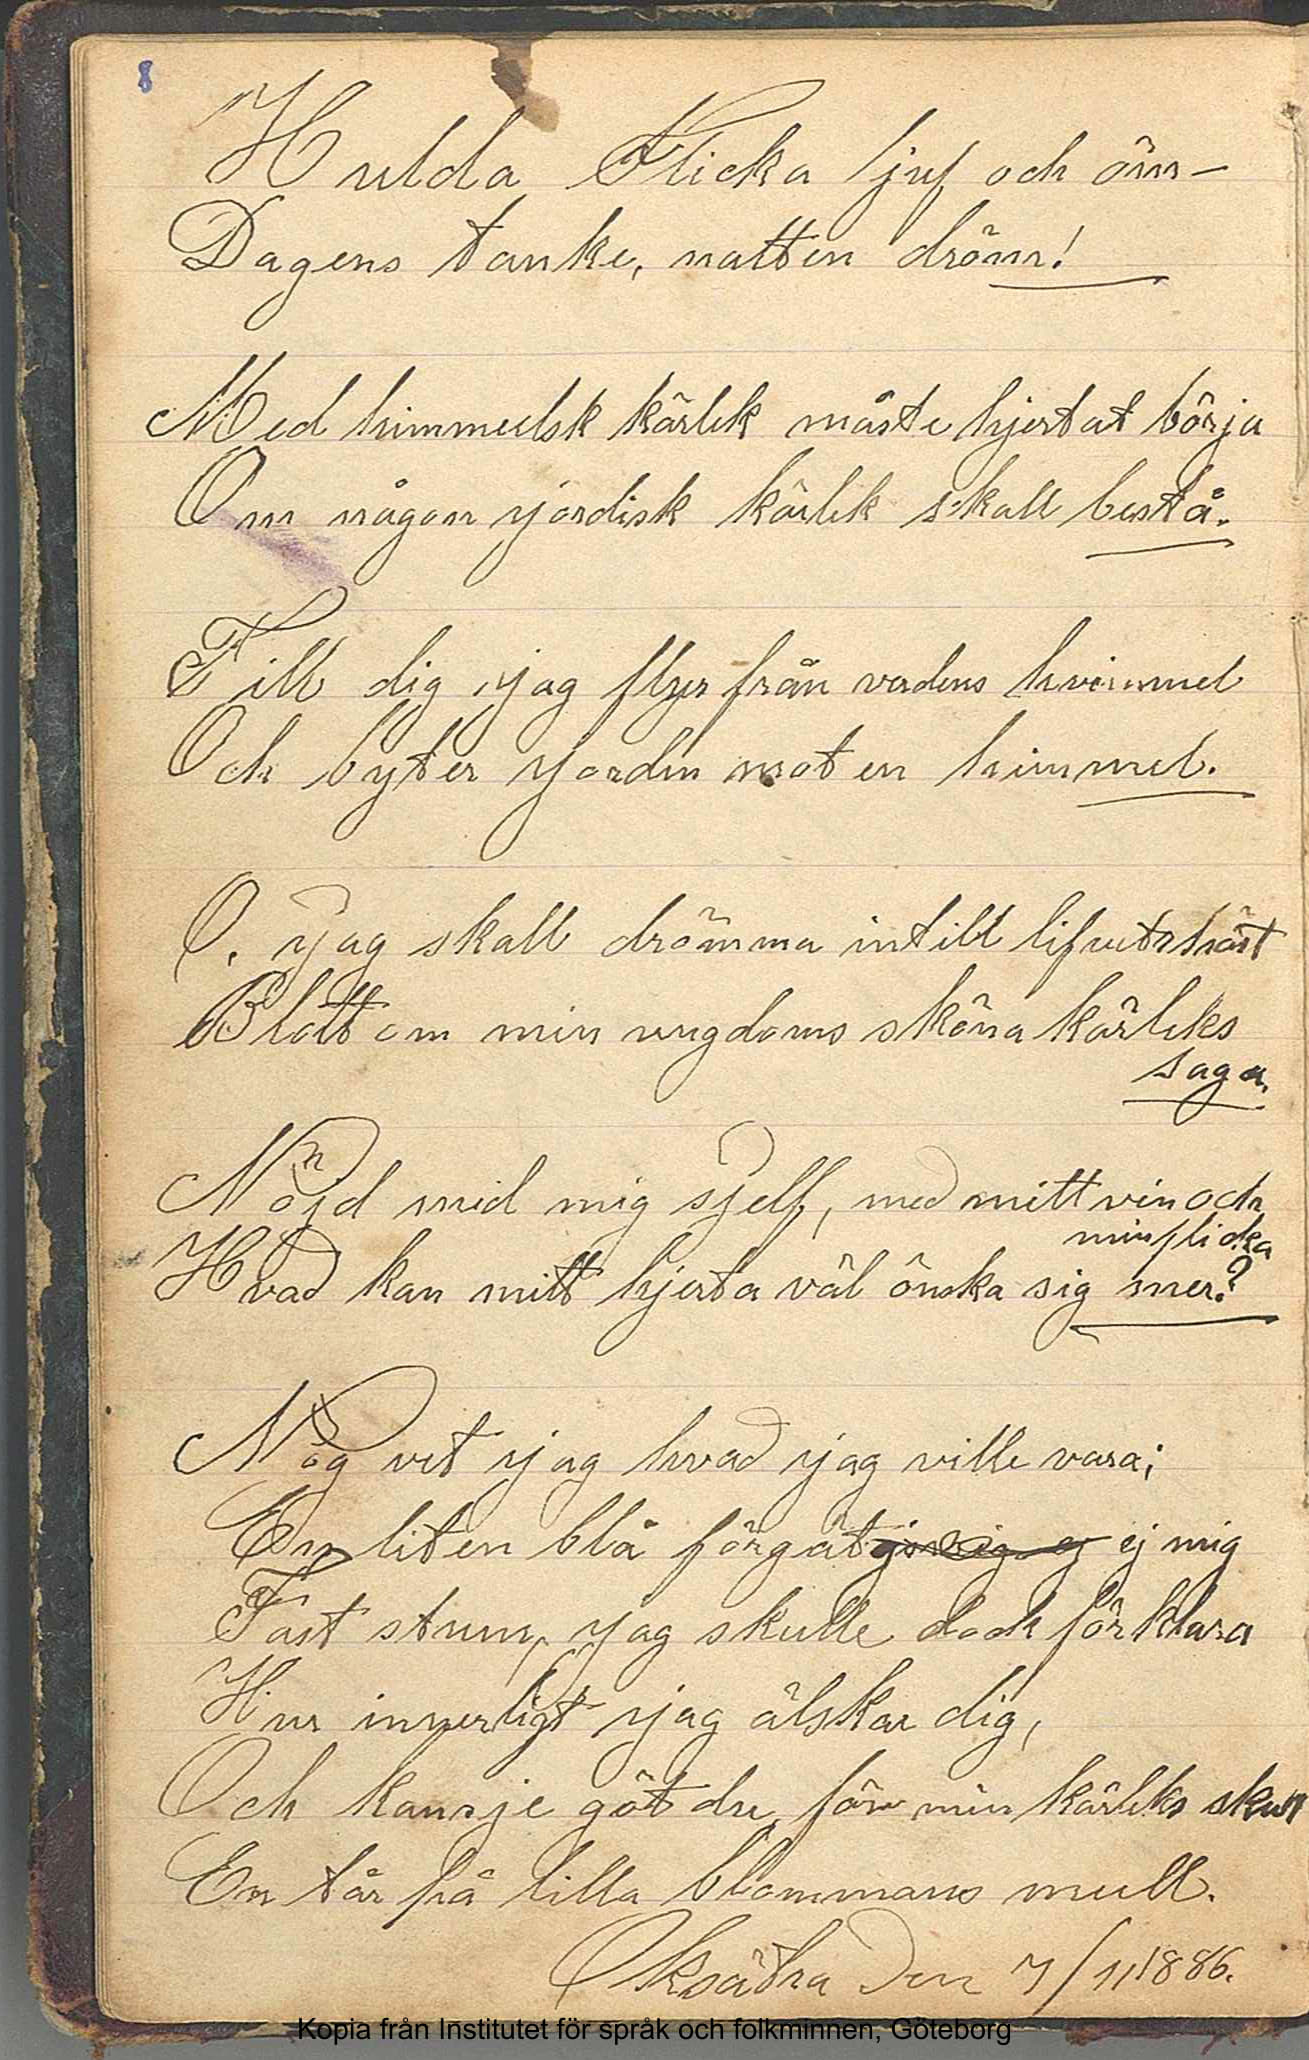 8
Hulda Flicka ljuf och öm-
Dagens tanke, natten dröm!
Med himmelsk kärlek måste hjertat börja
Om någon jordisk kärlek skall bestå.
Till dig jag flyr från verdens hvimmel
Och byter Jorden mot en himmel.
O. Jag skall drömma intill lifvets höst
Blott om min ungdoms sköna kärleks
saga.
Nöjd med mig sjelf, med mitt vin och
min flicka
Hvad kan mitt hjerta väl önska sig mer?
Nog vet jag hvad jag ville vara;
En liten blå förgät ej mig
Fast stum, jag skulle dock förklara
Hur innerligt jag älskar dig,
Och kansje göt du för min kärleks skull
En tår på lilla blommans mull.
Oksätra Den 7/11 1886.
Kopia från Institutet för språk och folkminnen, Göteborg